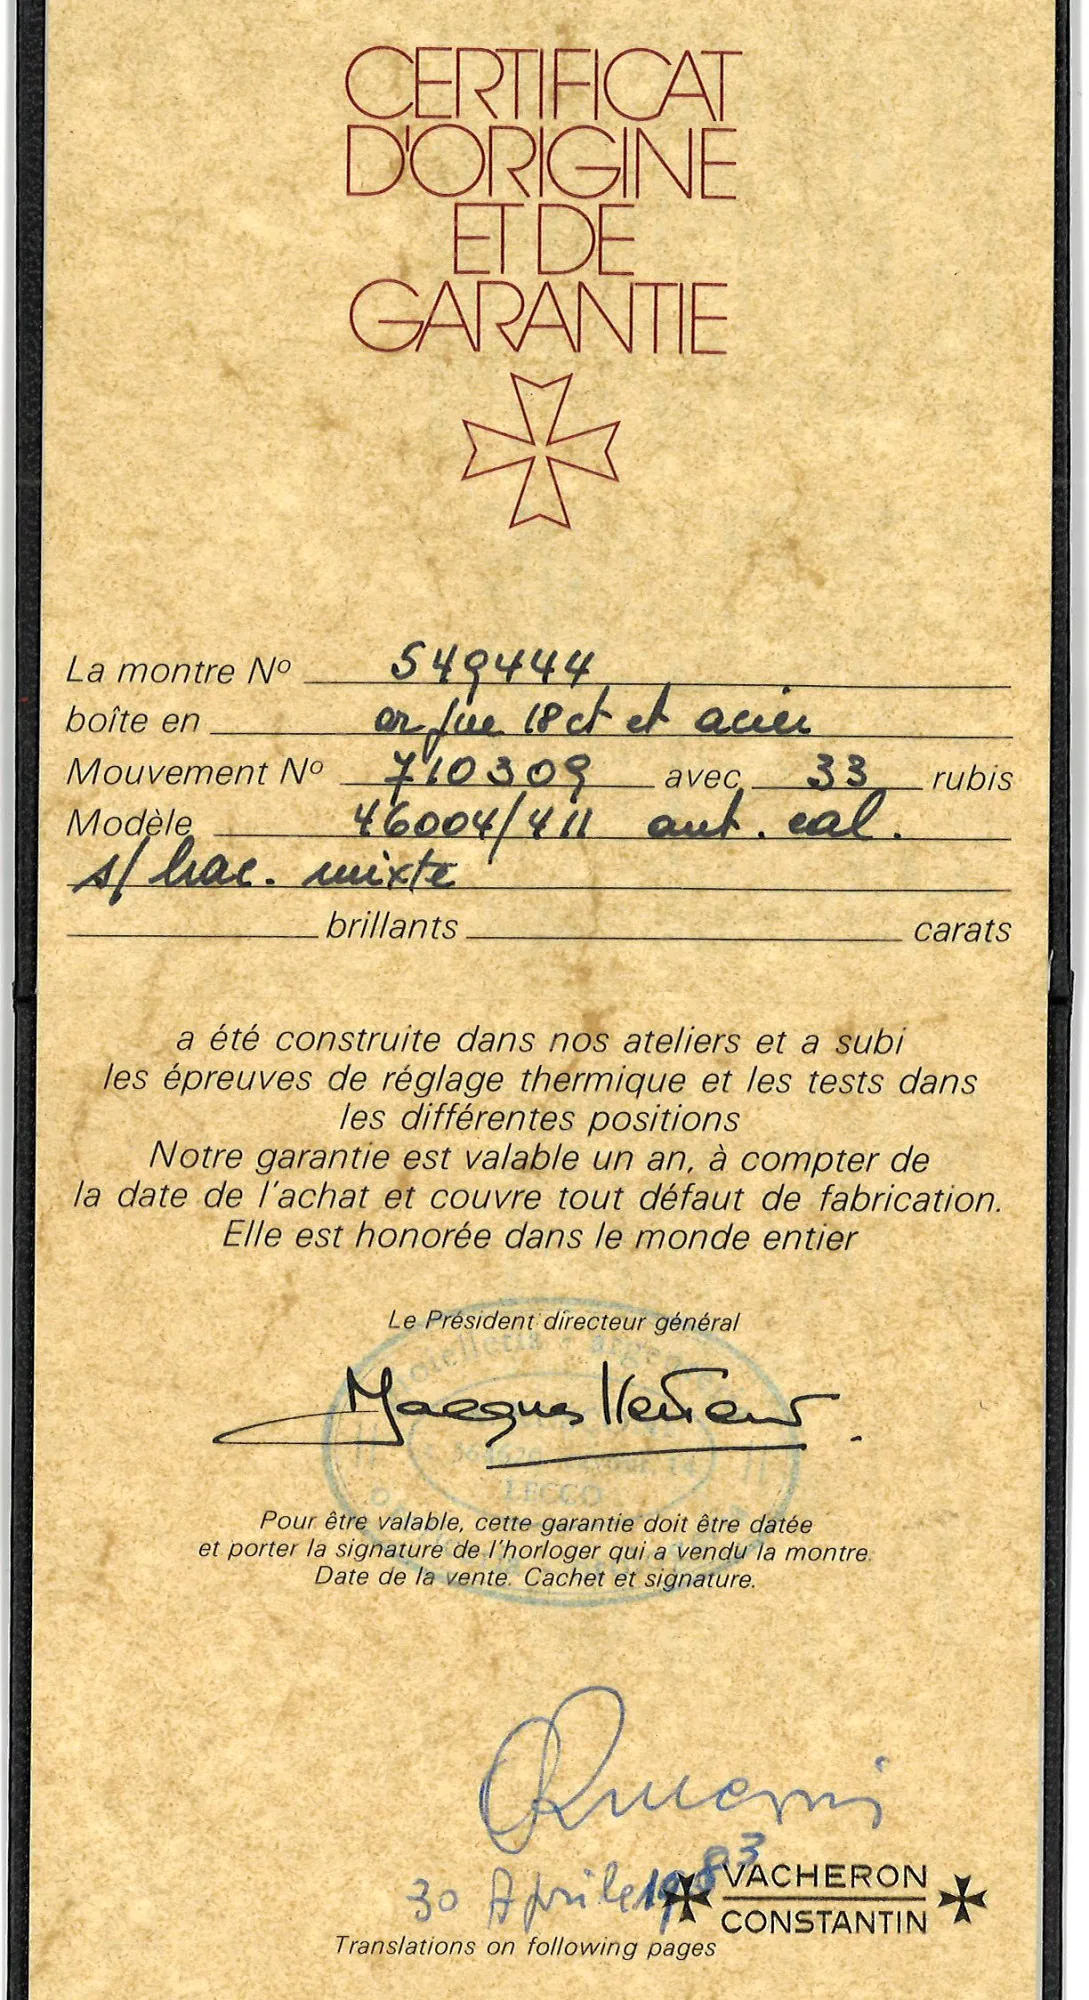 CERTIFICAT
D'ORIGINE
ET DE
GARANTIE
La montre Nº 549444
boîte en or jne 18 ct et acier
Mouvement Nº 710309 avec 33 rubis
Modèle 46004/411 aut. cal.
s/ brac. mixte
brillants carats
a été construite dans nos ateliers et a subi
les épreuves de réglage thermique et les tests dans
les différentes positions
Notre garantie est valable un an, à compter de
la date de l'achat et couvre tout défaut de fabrication.
Elle est honorée dans le monde entier
Le Président directeur général
Jacques
LECCO
Pour être valable, cette garantie doit être datée
et porter la signature de l'horloger qui a vendu la montre.
Date de la vente. Cachet et signature.
30 Aprile 1983
VACHERON
CONSTANTIN
Translations on following pages